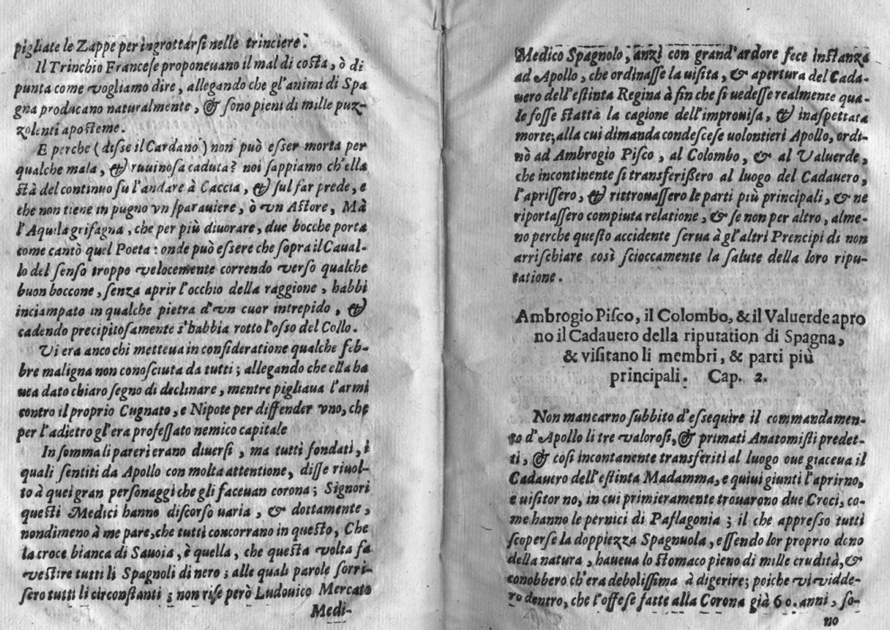 pigliate le Zappe per ingrottarsi nelle trinciere.
Il Trinchio Francese proponeuano il mal di costa, ò di
punta come vogliamo dire, allegando che gl'animi di Spa
gna producano naturalmente, & sono pieni di mille puz-
zolenti aposteme.
E perche (disse il Cardano) non può esser morta per
qualche mala, & ruuinosa caduta? noi sappiamo ch'ella
stà del continuo su l'andare à Caccia, & sul far prede, e
che non tiene in pugno vn sparauiere, ò vn Astore, Mà
l'Aquila grifagna, che per più diuorare, due bocche porta
come cantò quel Poeta: onde può essere che sopra il Caual-
lo del senso troppo velocemente correndo verso qualche
buon boccone, senza aprir l'occhio della raggione, habbi
inciampato in qualche pietra d'vn cuor intrepido, &
cadendo precipitosamente s'habbia rotto l'osso del Collo.
Vi era anco chi metteua in consideratione qualche feb-
bre maligna non conosciuta da tutti; allegando che ella ha
uea dato chiaro segno di declinare, mentre pigliaua l'armi
contro il proprio Cugnato, e Nipote per diffender vno, che
per l'adietro gl'era professato nemico capitale
In somma li pareri erano diuersi, ma tutti fondati, i
quali sentiti da Apollo con molta attentione, disse riuol-
to à quei gran personaggi che gli faceuan corona; Signori
questi Medici hanno discorso uaria, & dottamente,
nondimeno à me pare, che tutti concorrano in questo, Che
la croce bianca di Sauoia, è quella, che questa volta fa
vestire tutti li Spagnoli di nero; alle quali parole sorri-
sero tutti li circonstanti; non rise però Ludouico Mercato
Medi-
Medico Spagnolo, anzi con grand'ardore fece instanza
ad Apollo, che ordinasse la uisita, & apertura del Cada-
uero dell'estinta Regina à fin che si uedesse realmente qua-
le fosse stattà la cagione dell'improuisa, & inaspettata
morte; alla cui dimanda condescese uolontieri Apollo, ordi-
nò ad Ambrogio Pisco, al Colombo, & al Valuerde,
che incontinente si transferißero al luogo del Cadauero,
l'aprissero, & rittrouassero le parti più principali, & ne
riportassero compiuta relatione, & se non per altro, alme-
no perche questo accidente serua à gl'altri Prencipi di non
arrischiare così scioccamente la salute della loro ripu-
tatione.
Ambrogio Pisco, il Colombo, & il Valuerde apro
no il Cadauero della riputation di Spagna,
& visitano li membri, & parti più
principali. Cap. 2.
Non mancarno subbito d'essequire il commandamen-
to d'Apollo li tre valorosi, & primati Anatomisti predet-
ti, & così incontanente transferiti al luogo oue giaceua il
Cadauero dell'estinta Madamma, e quiui giunti l'aprirno,
e uisitor no, in cui primieramente trouarono due Croci, co-
me hanno le pernici di Paflagonia; il che appresso tutti
scoperse la doppiezza Spagnuola, essendo lor proprio dono
della natura, haueua lo stomaco pieno di mille crudità, &
conobbero ch'era debolissima à digerire; poiche vi vidde-
ro dentro, che l'offese fatte alla Corona già 60. anni, so-
no